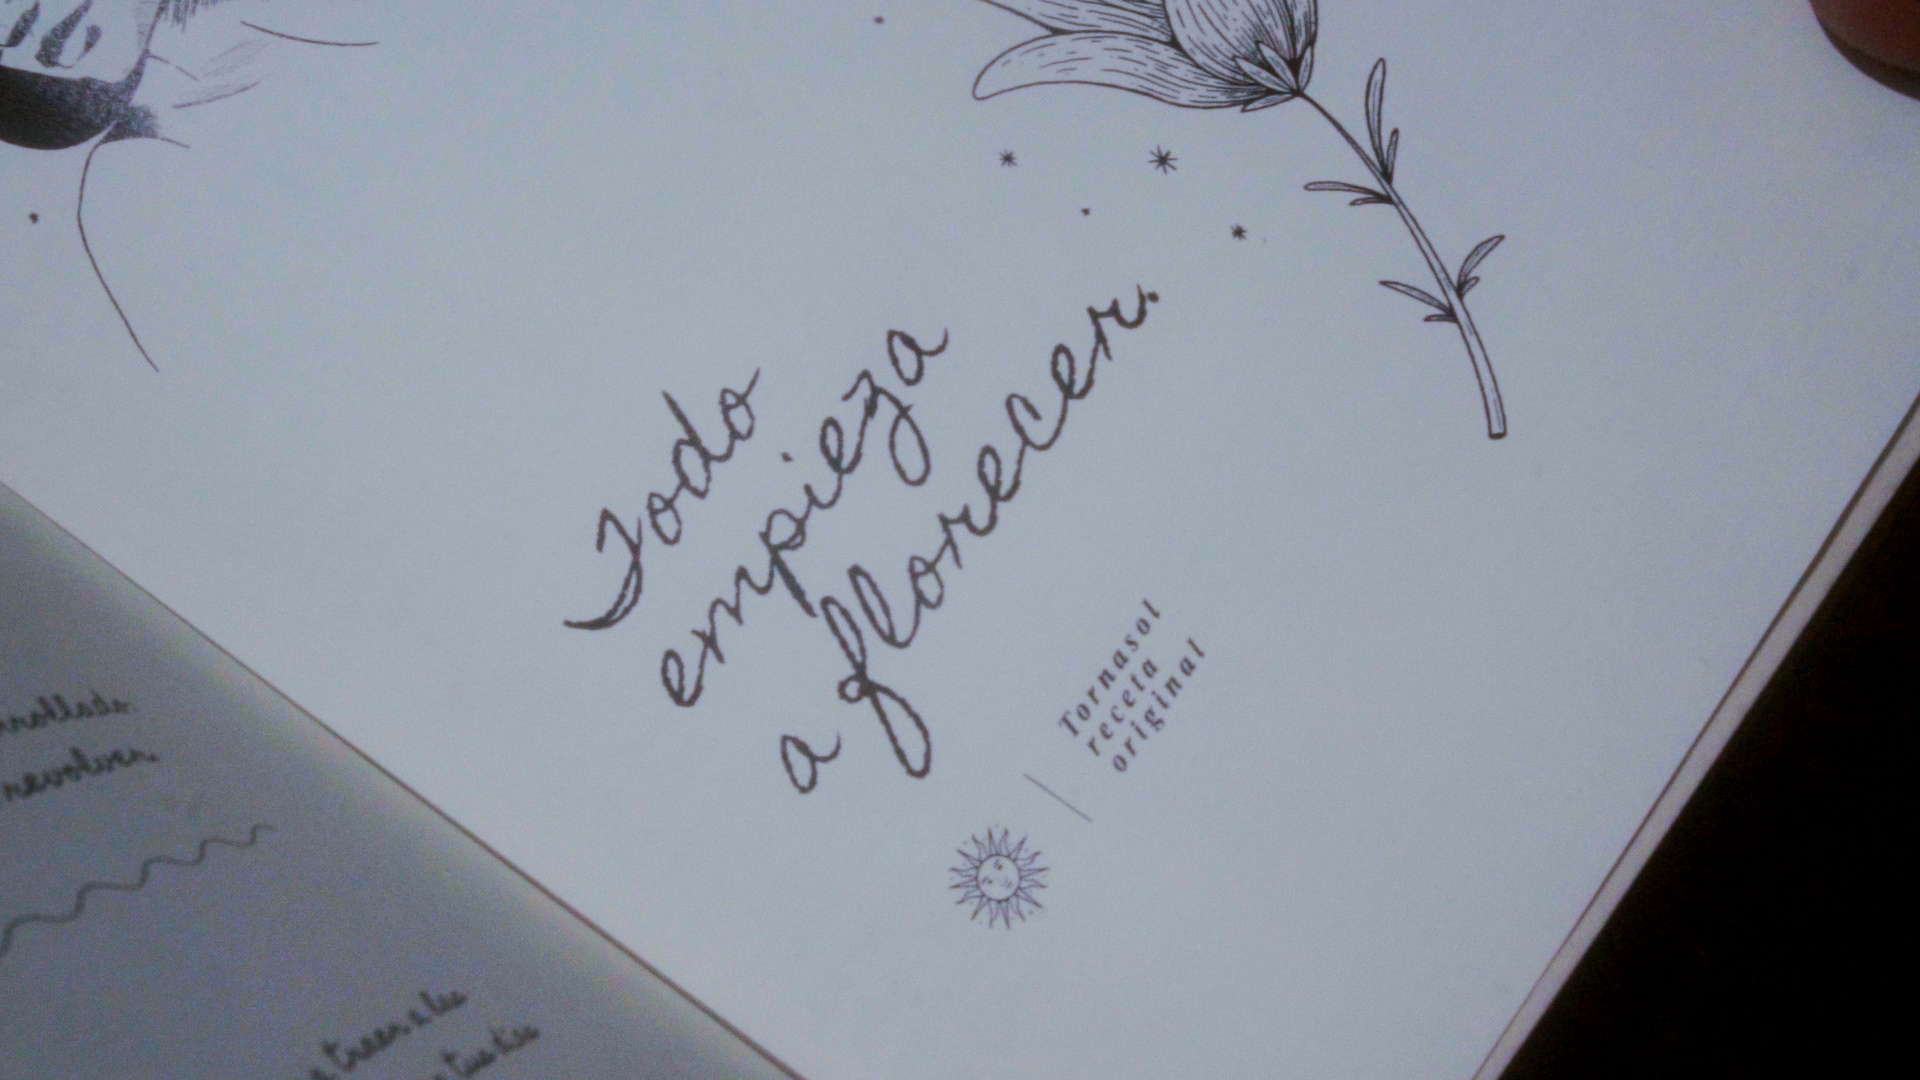 Todo
empieza
a florecer.
Tornasol
receta
original
revolver.
traen a las